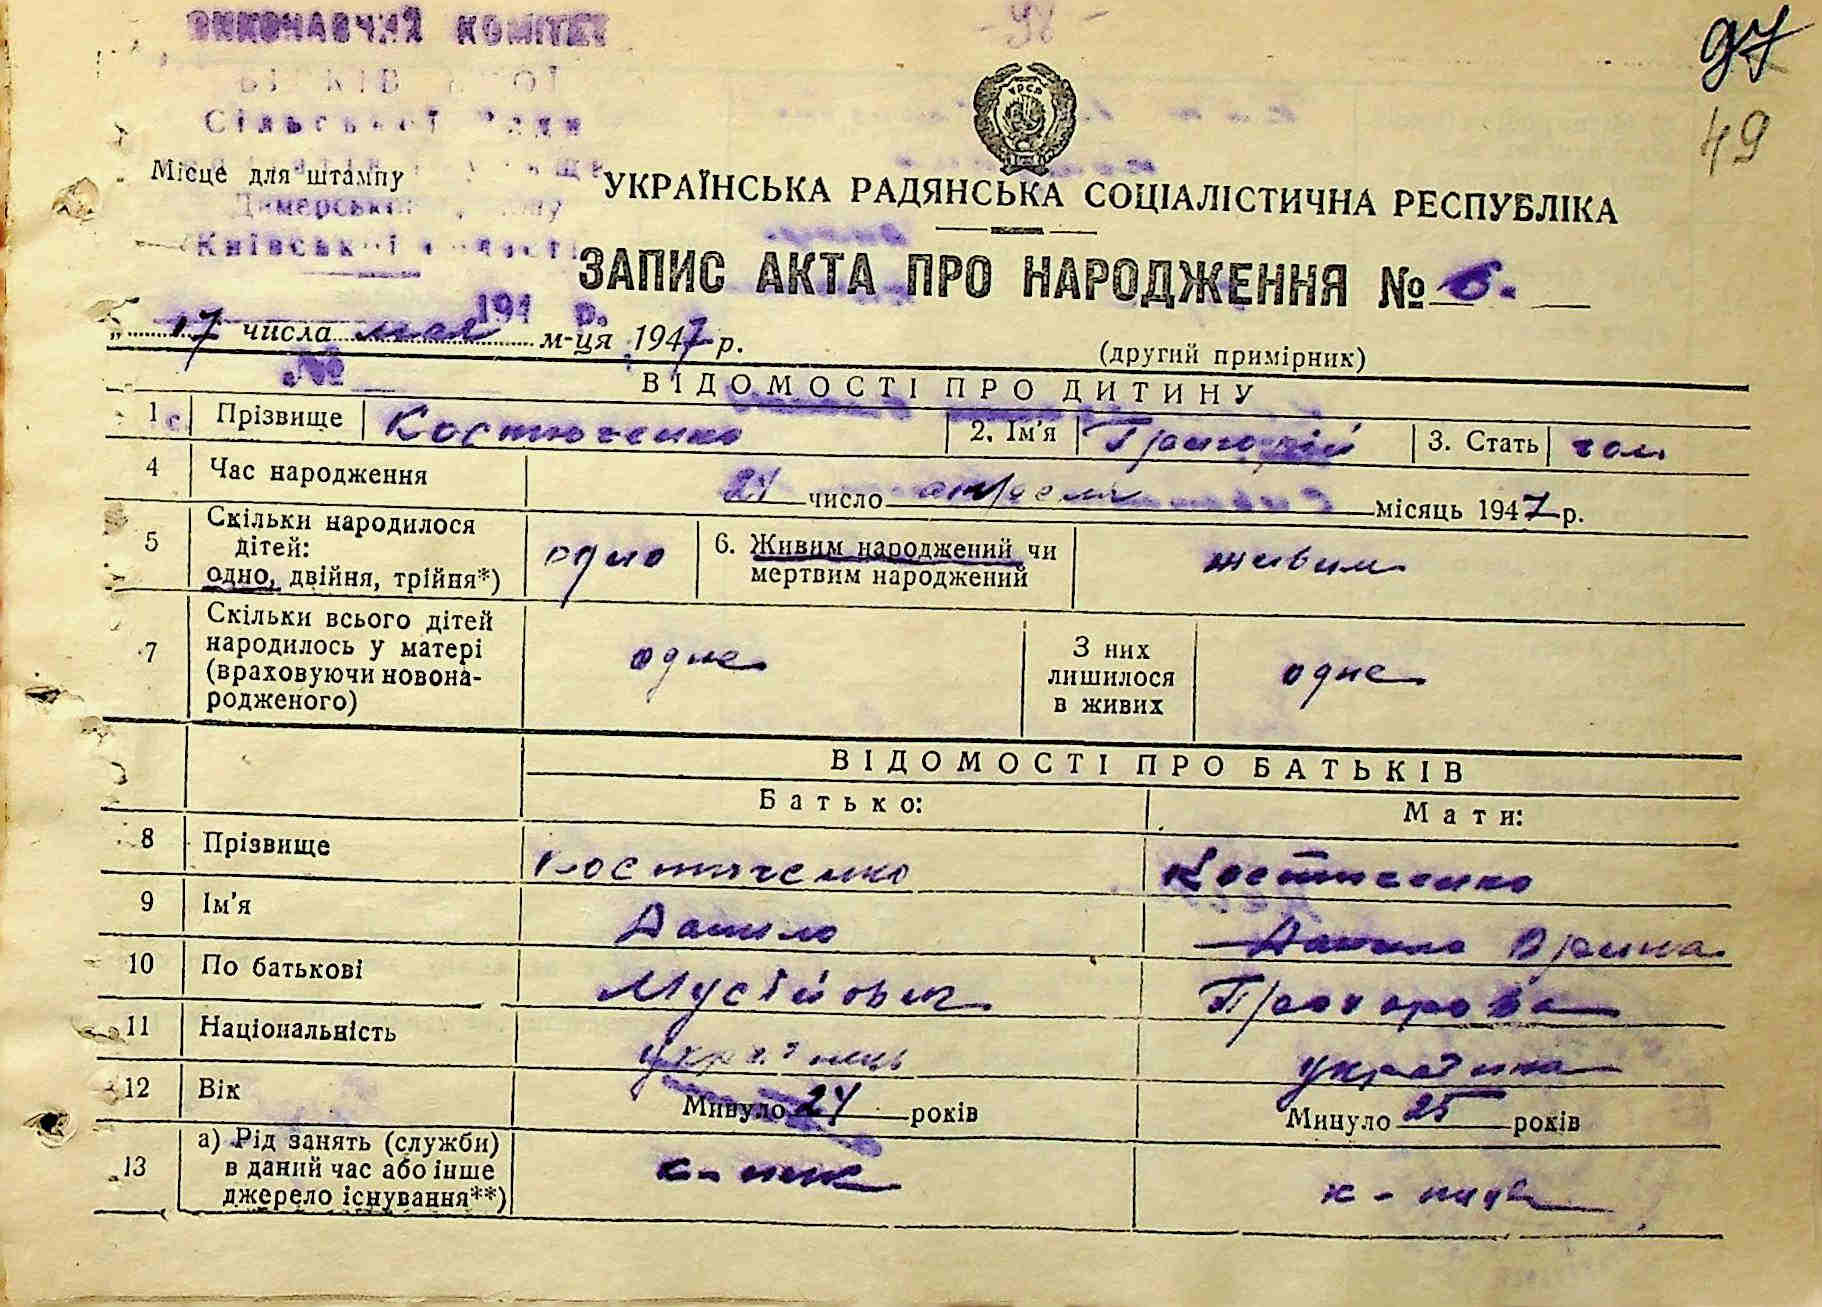 ВИКОНАВЧИЙ КОМІТЕТ
97
49
Сільської Ради
УРСР
Місце для штампу
Димерського району
УКРАЇНСЬКА РАДЯНСЬКА СОЦІАЛІСТИЧНА РЕСПУБЛІКА
Київської області
ЗАПИС АКТА ПРО НАРОДЖЕННЯ № 6.
194 р.
„ 17 числа мая м-ця 1947 р.
(другий примірник)
№
ВІДОМОСТІ ПРО ДИТИНУ
1 с Прізвище Костюченко 2. Ім'я Григорій 3. Стать чол
4 Час народження число апреля місяць 1947 р.
5 Скільки народилося дітей: одно, двійня, трійня*) одно 6. Живим народжений чи мертвим народжений живим
7 Скільки всього дітей народилось у матері (враховуючи новонародженого) одне З них лишилося в живих одне
ВІДОМОСТІ ПРО БАТЬКІВ
Батько: Мати:
8 Прізвище Костюченко Костюченко
9 Ім'я Данило Данило Орина
10 По батькові Мусійович Прохорова
11 Національність українець українка
12 Вік Минуло 24 років Минуло 25 років
13 а) Рід занять (служби) в даний час або інше джерело існування**) к-ник к-ниця